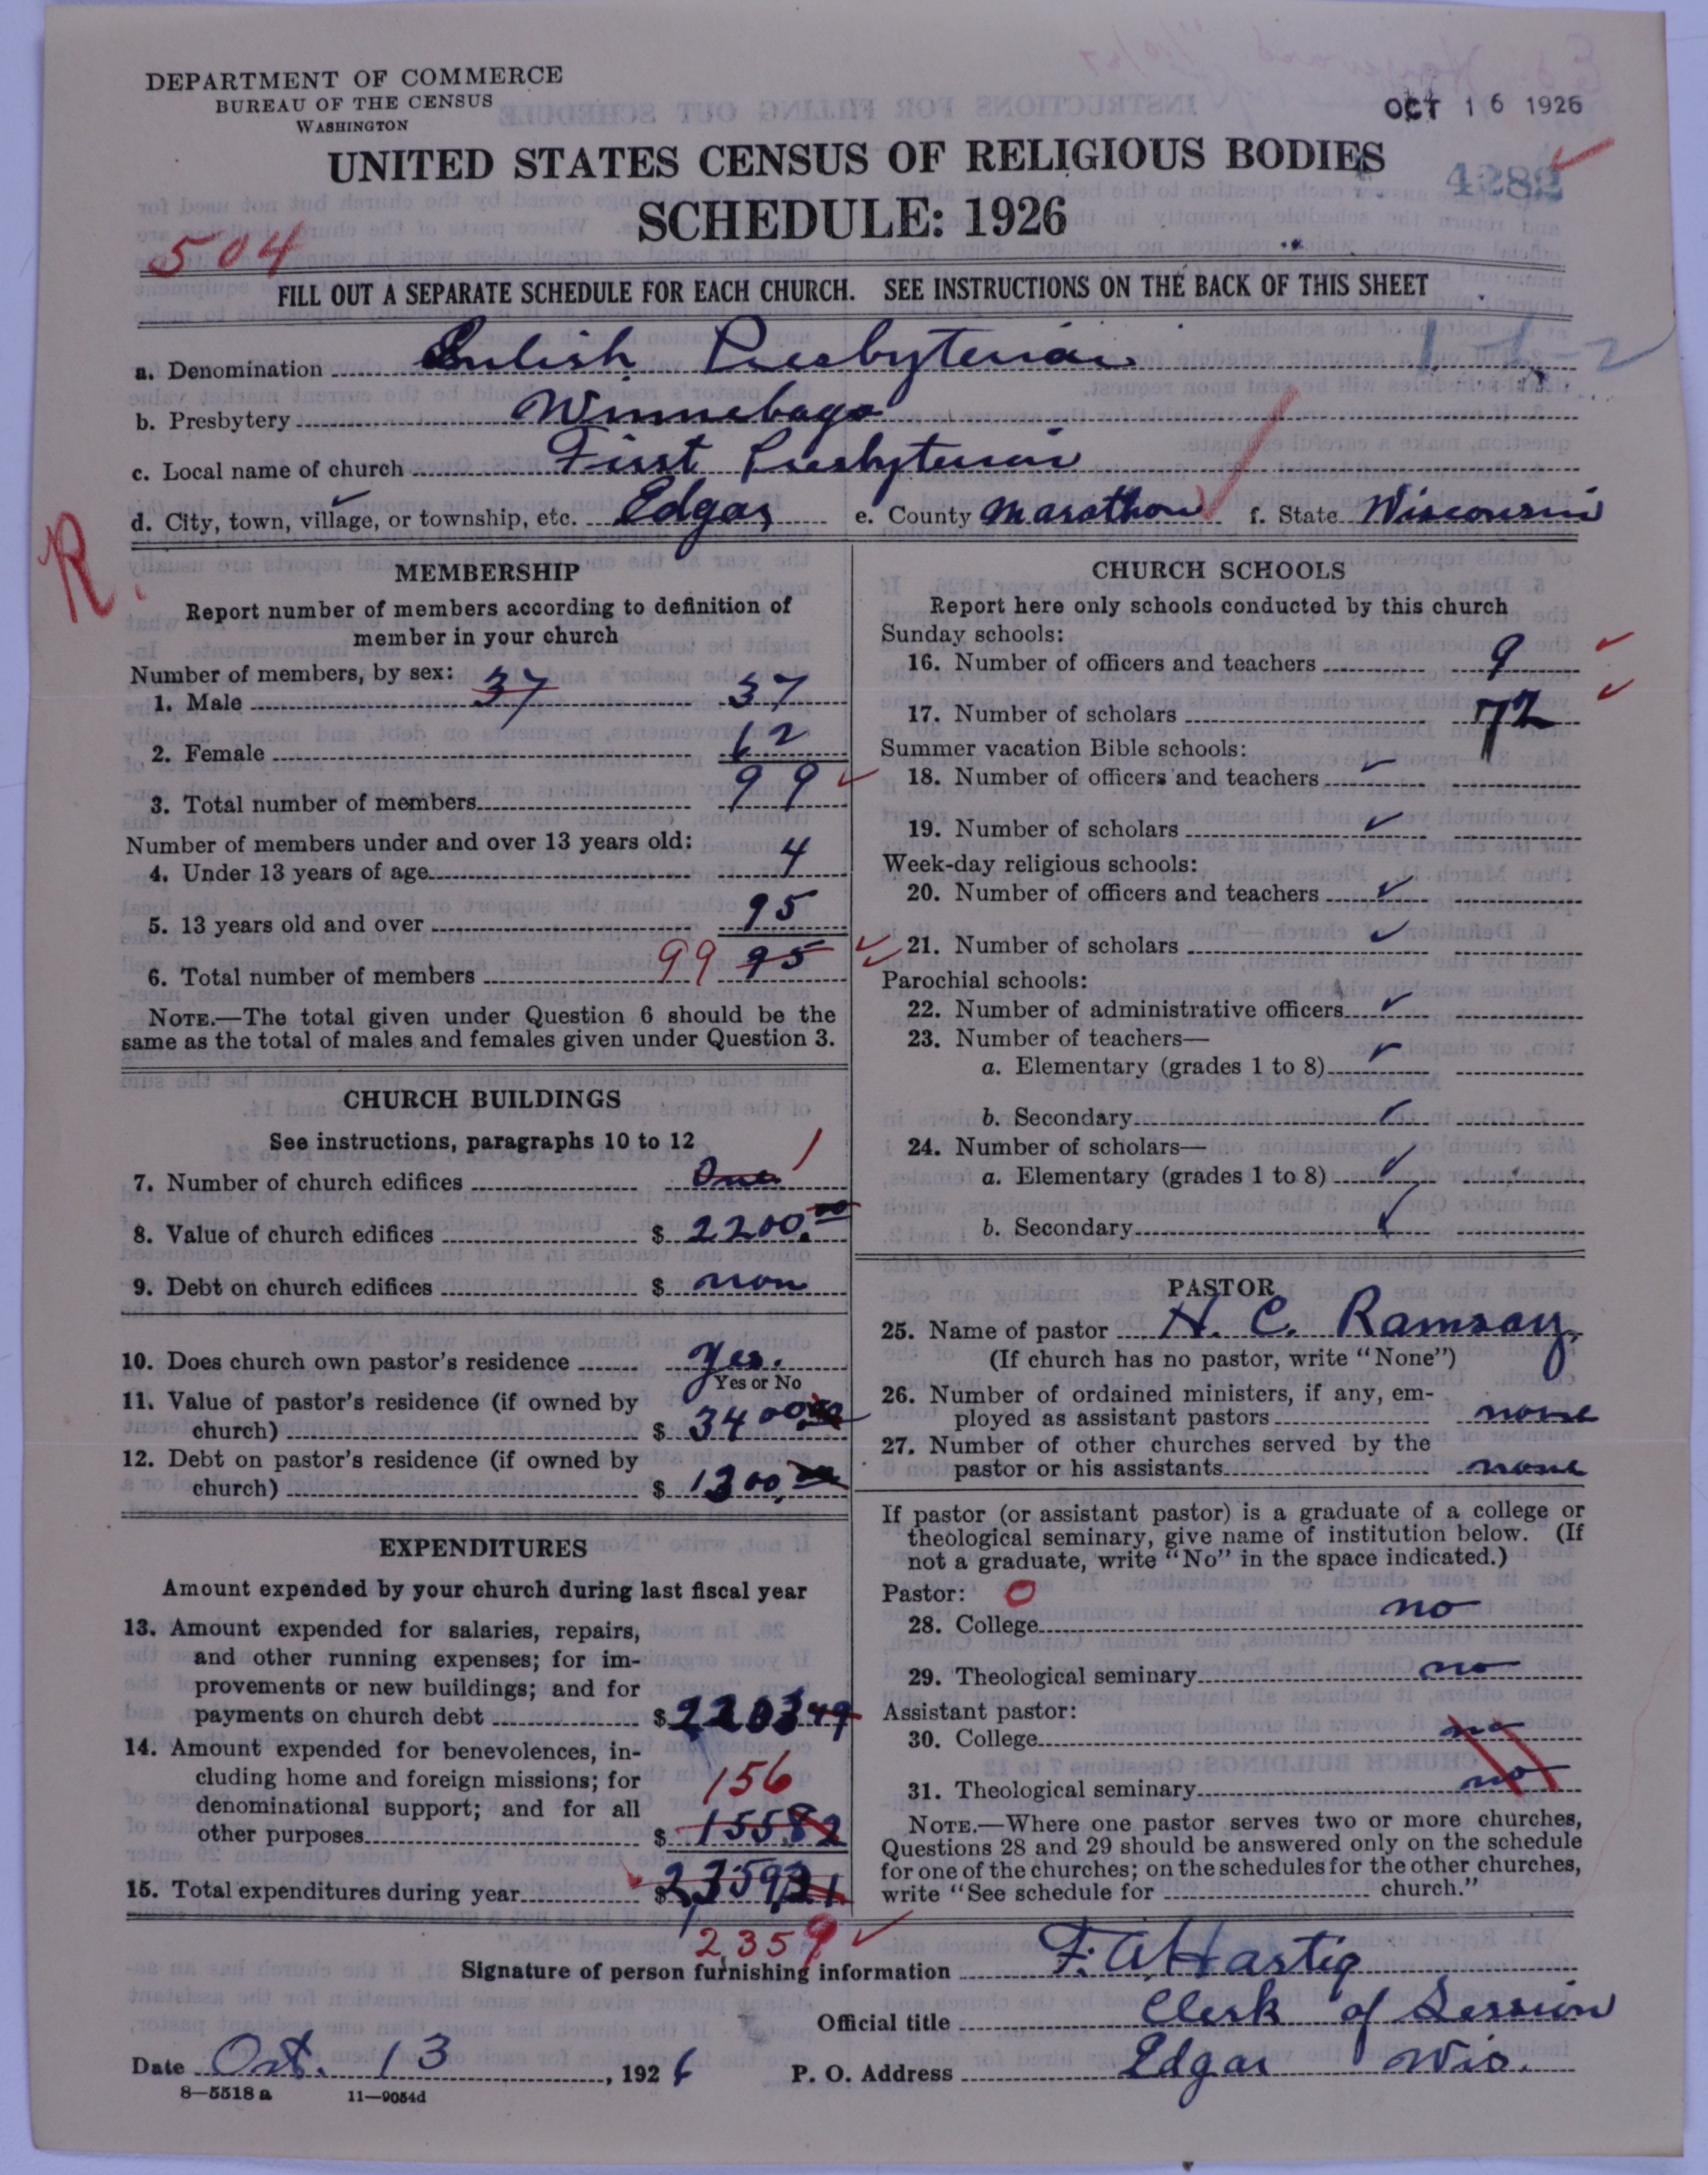 DEPARTMENT OF COMMERCE
BUREAU OF THE CENSUS
WASHINGTON
OCT 16 1926
UNITED STATES CENSUS OF RELIGIOUS BODIES
4282
SCHEDULE: 1926
504
FILL OUT A SEPARATE SCHEDULE FOR EACH CHURCH. SEE INSTRUCTIONS ON THE BACK OF THIS SHEET
1-1-2
a. Denomination Enlish Presbyterian
b. Presbytery Winnebago
c. Local name of church First Presbyterian
d. City, town, village, or township, etc. Edgar e. County Marathon f. State Wisconsin
R.
MEMBERSHIP
Report number of members according to definition of
member in your church
Number of members, by sex:
1. Male 37 37
2. Female 62
3. Total number of members 99
Number of members under and over 13 years old:
4. Under 13 years of age 4
5. 13 years old and over 95
6. Total number of members 99 95
NOTE.—The total given under Question 6 should be the
same as the total of males and females given under Question 3.
CHURCH BUILDINGS
See instructions, paragraphs 10 to 12
7. Number of church edifices One 1
8. Value of church edifices $ 2200.00
9. Debt on church edifices $ non
10. Does church own pastor's residence Yes.
Yes or No
11. Value of pastor's residence (if owned by
church) $ 3400.00
12. Debt on pastor's residence (if owned by
church) $ 1300.00
EXPENDITURES
Amount expended by your church during last fiscal year
13. Amount expended for salaries, repairs,
and other running expenses; for im-
provements or new buildings; and for
payments on church debt $ 2203 49
14. Amount expended for benevolences, in-
cluding home and foreign missions; for
denominational support; and for all
156
other purposes $ 155 82
15. Total expenditures during year $ 2359 31
2359
CHURCH SCHOOLS
Report here only schools conducted by this church
Sunday schools:
16. Number of officers and teachers 9
17. Number of scholars 72
Summer vacation Bible schools:
18. Number of officers and teachers
19. Number of scholars
Week-day religious schools:
20. Number of officers and teachers
21. Number of scholars
Parochial schools:
22. Number of administrative officers
23. Number of teachers—
a. Elementary (grades 1 to 8)
b. Secondary
24. Number of scholars—
a. Elementary (grades 1 to 8)
b. Secondary
PASTOR
25. Name of pastor H. C. Ramsay,
(If church has no pastor, write "None")
26. Number of ordained ministers, if any, em-
ployed as assistant pastors none
27. Number of other churches served by the
pastor or his assistants none
If pastor (or assistant pastor) is a graduate of a college or
theological seminary, give name of institution below. (If
not a graduate, write "No" in the space indicated.)
Pastor: 0
28. College no
29. Theological seminary no
Assistant pastor:
30. College no
31. Theological seminary no
NOTE.—Where one pastor serves two or more churches,
Questions 28 and 29 should be answered only on the schedule
for one of the churches; on the schedules for the other churches,
write "See schedule for church."
Signature of person furnishing information F. A. Hartig
Official title Clerk of Session
Date Oct. 13, 1926 P. O. Address Edgar Wis.
8—5518 a 11—9054d